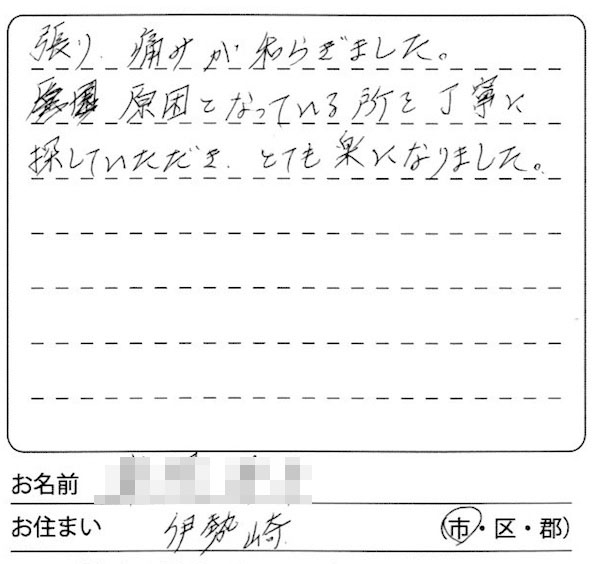 張り、痛みが和らぎました。
原因となっている所を丁寧に
探していただき、とても楽になりました。
お名前
お住まい 伊勢崎 (市・区・郡)